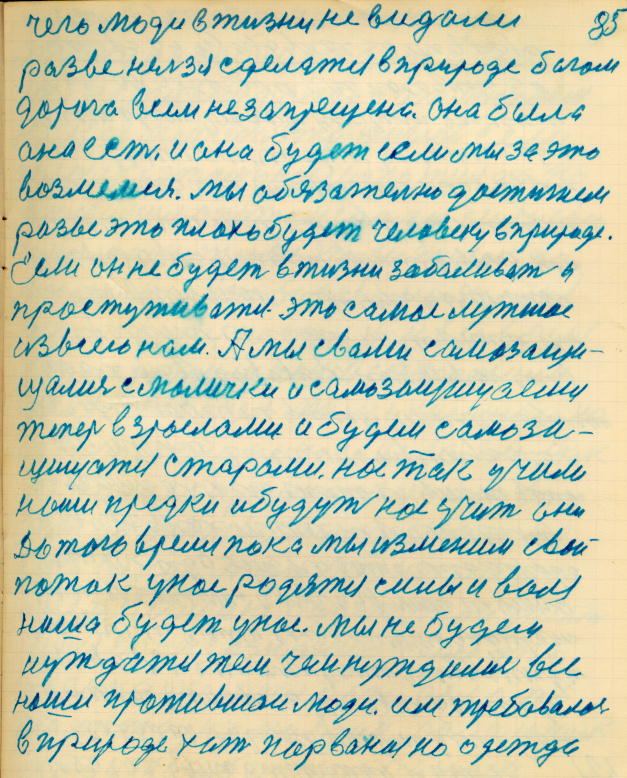 чего люди в жизни не видали 85
разве нелзя сделатся в природе багом
дорога всем не запрещена. она была
она ест. и она будет если мы за это
возмемся. мы обязателно достижем
разве это плохо будет человеку в природе.
Если он не будет в жизни заболиват и
простуживатся. это самое лутшое
из всего нам. А мы с вами самозащи-
щался с малички и самозащищаемся
тепер взрослами и будем самоза-
щищатся старами. нас так учили
наши предки и будут нас учит они
до того время пока мы изменим свой
поток у нас родятся силы и воля
наша будет у нас. мы не будем
нуждатся тем чем нуждался все
наши протившаи люди. им требовалос
в природе хот порваная но одежда